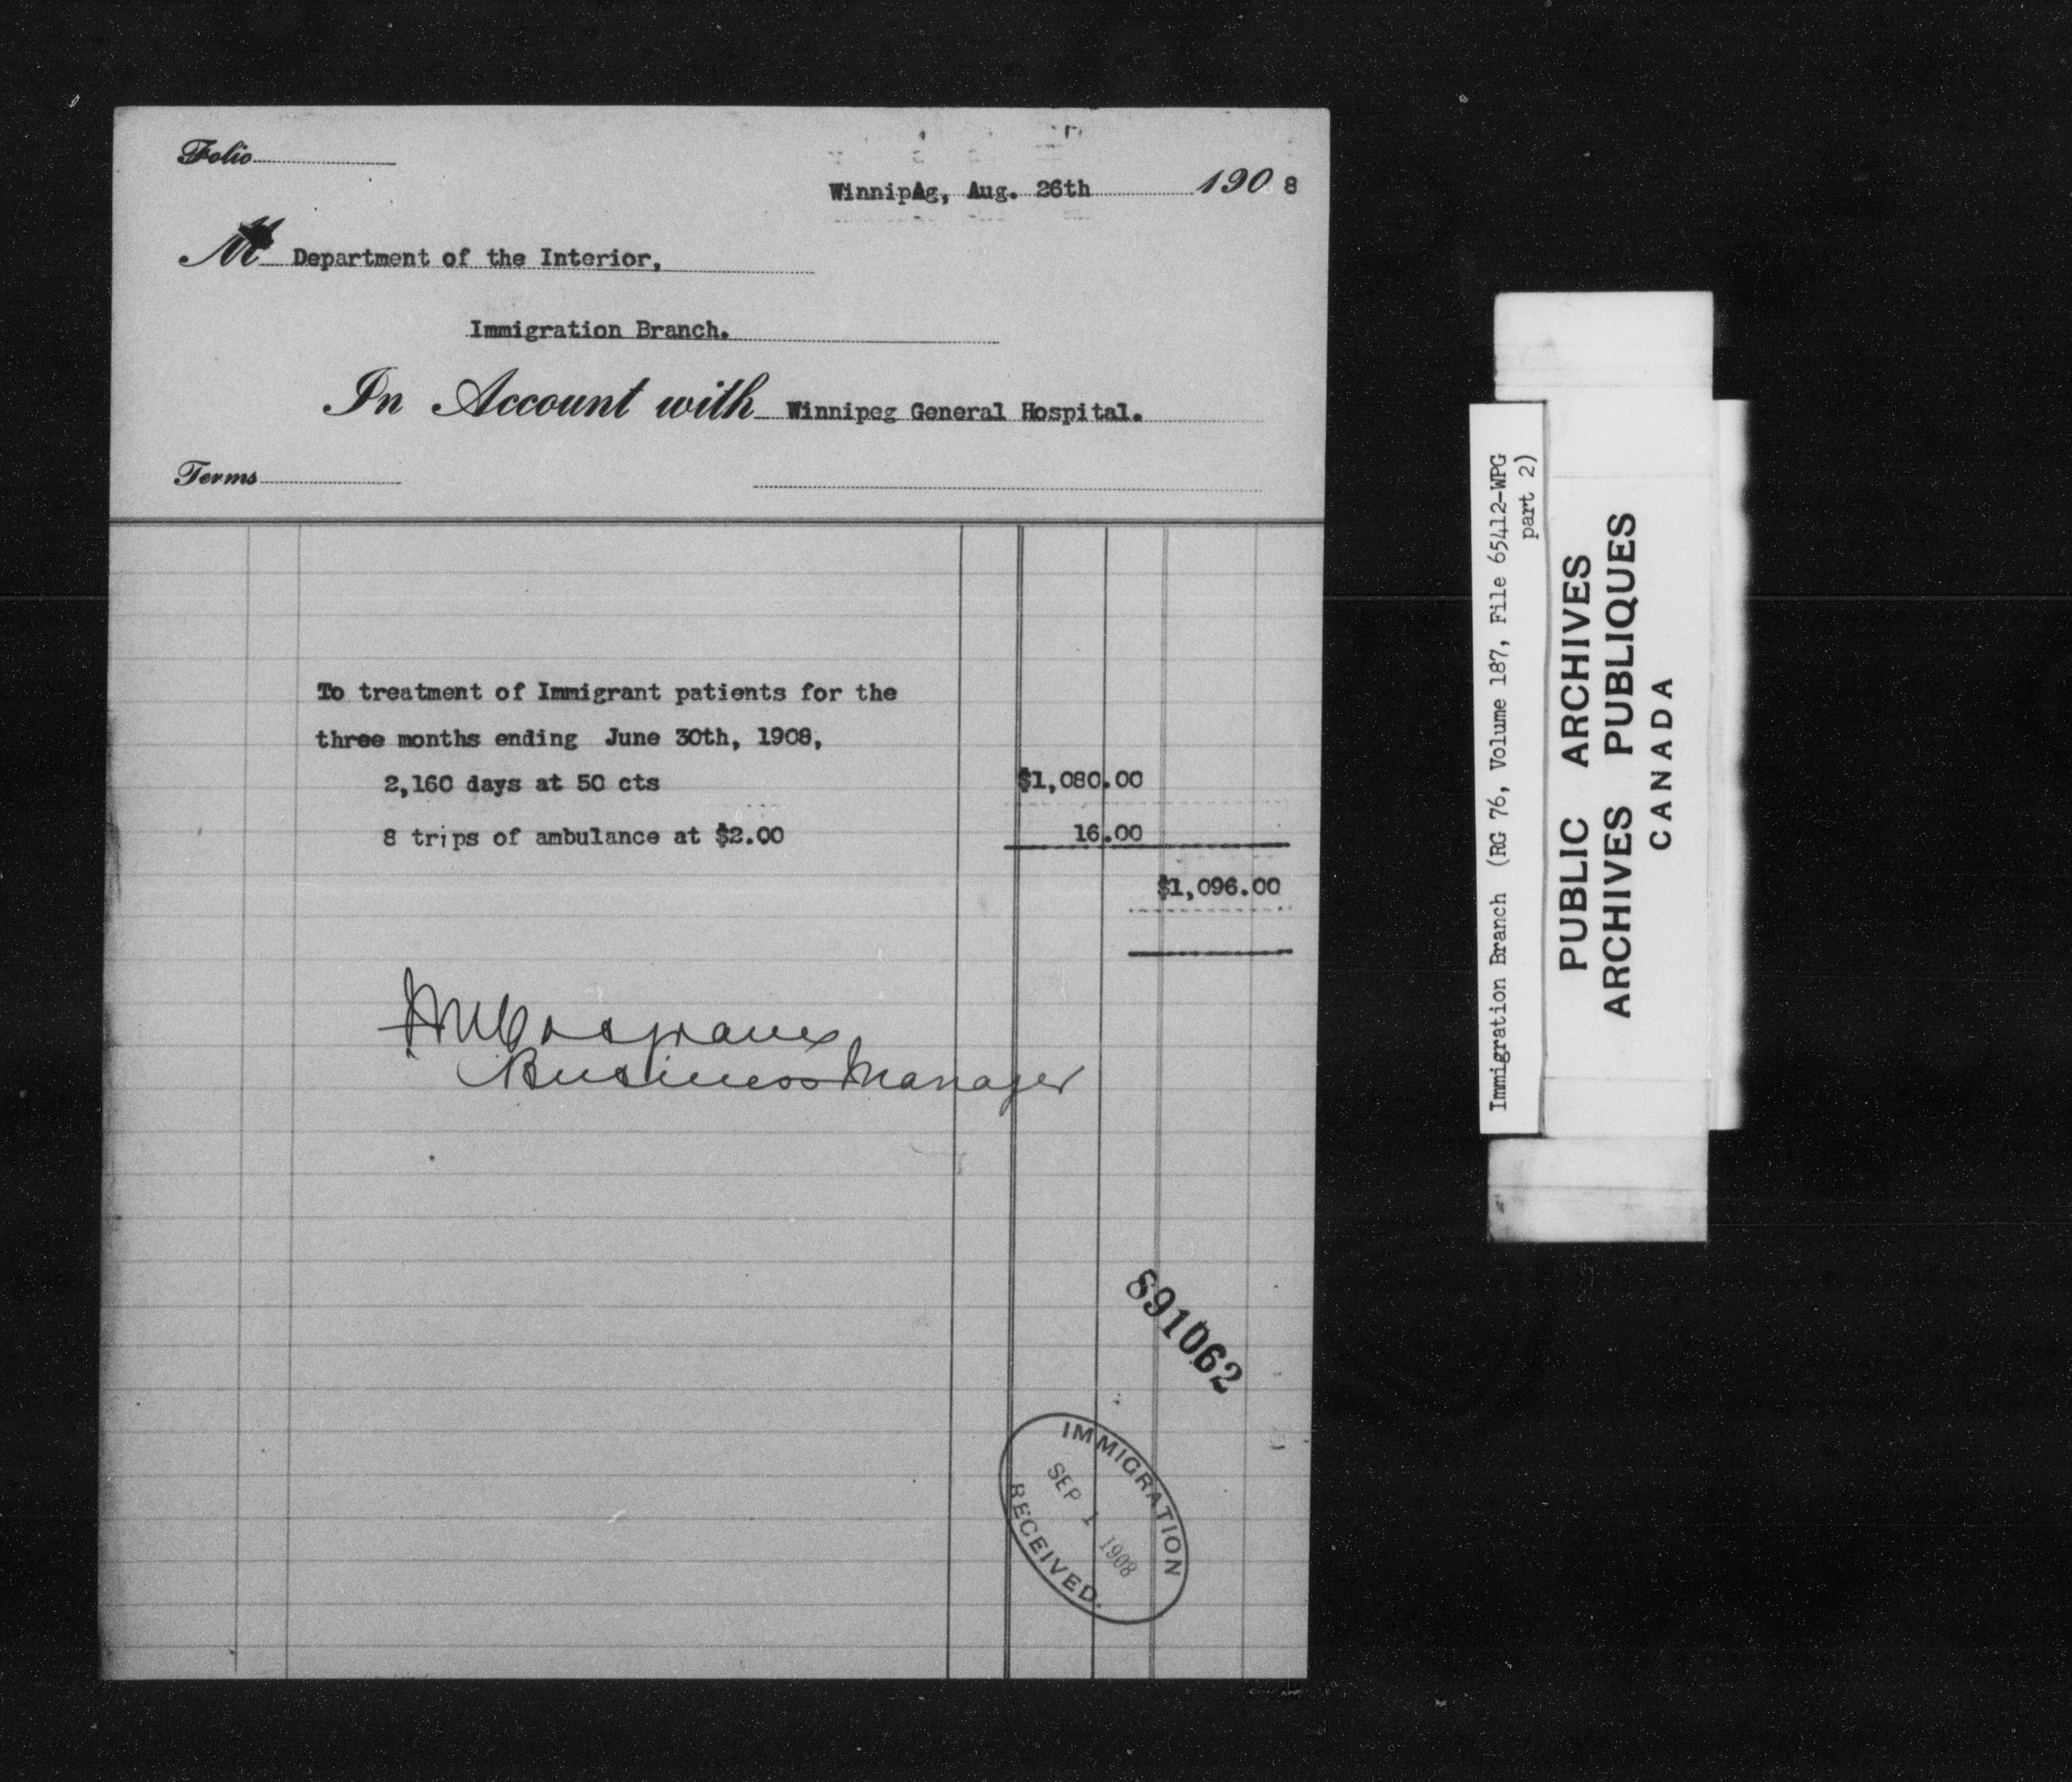 Folio
WinnipAg, Aug. 26th 190 8
M Department of the Interior,
Immigration Branch.
In Account with Winnipeg General Hospital.
Terms
To treatment of Immigrant patients for the
three months ending June 30th, 1908,
2,160 days at 50 cts $1,080.00
8 trips of ambulance at $2.00 16.00
$1,096.00
Cosgrave
Business Manager
891062
IMMIGRATION
SEP 1 1908
RECEIVED.
Immigration Branch (RG 76, Volume 187, File 65412-WPG
part 2)
PUBLIC ARCHIVES
ARCHIVES PUBLIQUES
CANADA